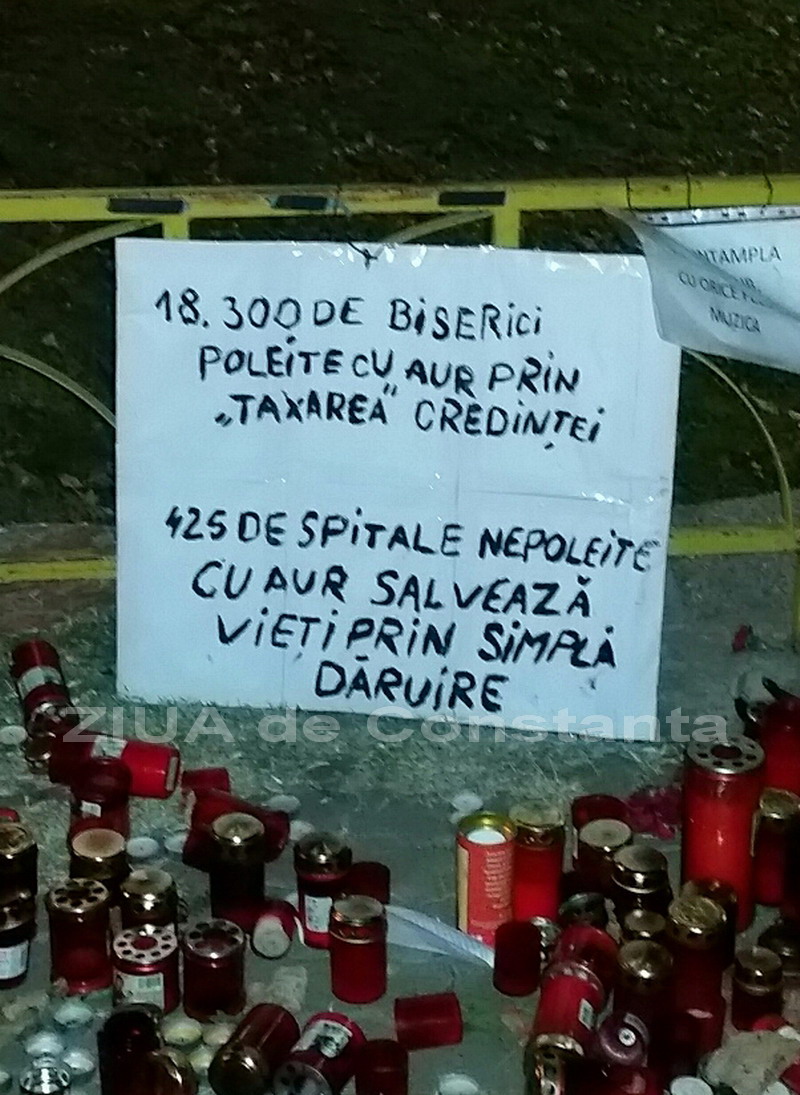 18.300 DE BISERICI
POLEITE CU AUR PRIN
„TAXAREA" CREDINȚEI
425 DE SPITALE NEPOLEITE
CU AUR SALVEAZĂ
VIEȚI PRIN SIMPLĂ
DĂRUIRE
CU ORICE
MUZICA
ZIUA de Constanta